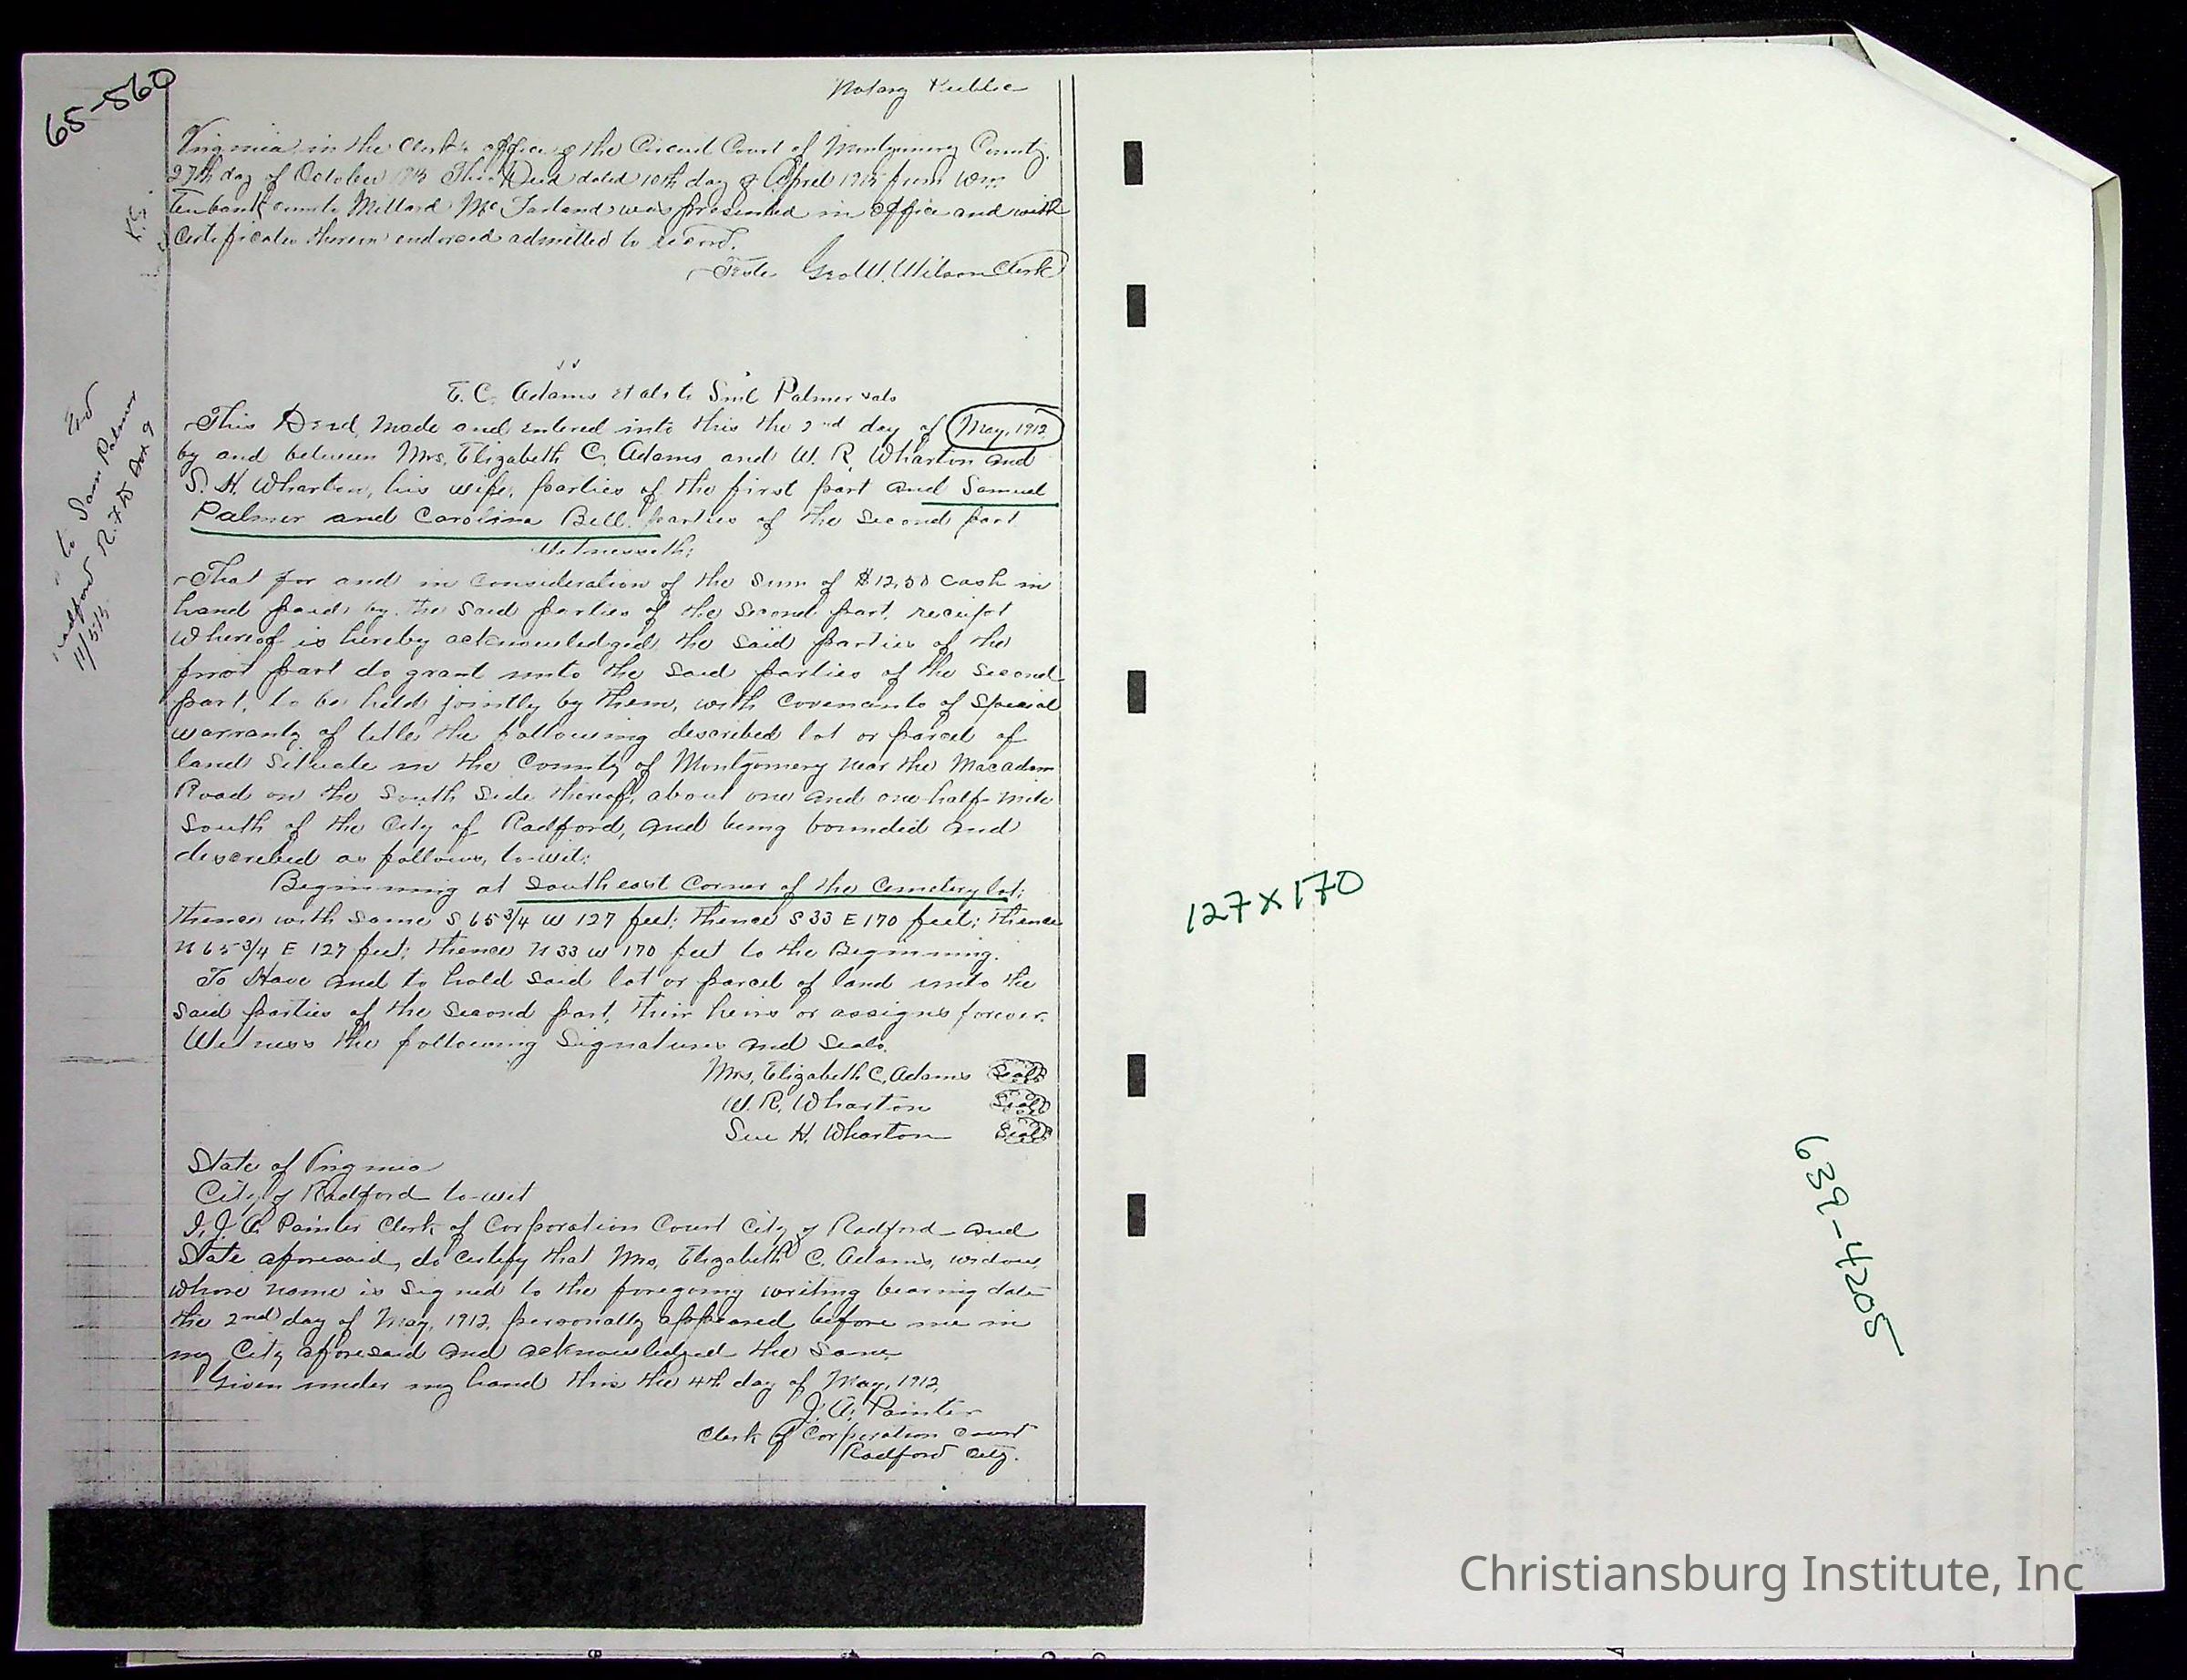 65-560
Notary Public
Virginia in the Clerk's office of the Circuit Court of Montgomery County,
27th day of October This Deed dated 10th day of April 1915 from Wm.
Millard McFarland was presented in office and with
Certificates thereon endorsed admitted to record.
Teste Geo W. Wilson Clerk
E. C. Adams et als to Saml Palmer et als
This Deed, made and entered into this the 2nd day of May, 1912
by and between Mrs, Elizabeth C, Adams and W. R, Wharton and
S. H. Wharton, his wife, parties of the first part and Samuel
Palmer and Carolina Bell. parties of the second part
Witnesseth;
That for and in consideration of the sum of $12,50 cash in
hand paid, by the said parties of the second part, receipt
whereof is hereby acknowledged, the said parties of the
first part do grant unto the said parties of the second
part, to be held jointly by them, with covenants of special
warranty of title the following described lot or parcel of
land situate in the County of Montgomery near the Macadam
Road on the South side thereof, about one and one half mile
South of the City of Radford, and being bounded and
described as follows, to-wit:
Beginning at Southeast Corner of the Cemetery lot;
thence with same S 65 3/4 W 127 feet; thence S 33 E 170 feet; thence
N 65 3/4 E 127 feet; thence N 33 W 170 feet to the Beginning.
To Have and to hold said lot or parcel of land unto the
said parties of the second part, their heirs or assigns forever.
Witness the following signatures and seals.
Mrs, Elizabeth C, Adams Seal
W. R. Wharton Seal
Sue H. Wharton Seal
State of Virginia
City of Radford to-wit
I, J. A. Painter Clerk of Corporation Court City of Radford and
State aforesaid, do certify that Mrs, Elizabeth C. Adams, widow,
whose name is signed to the foregoing writing bearing date
the 2nd day of May, 1912, personally appeared before me in
my City aforesaid and acknowledged the same
Given under my hand this the 4th day of May, 1912,
J. A. Painter
Clerk of Corporation Court
Radford City.
to Sam Palmer
Radford R.F.D Box 9
11/5/15
127 x 170
639-4205
Christiansburg Institute, Inc